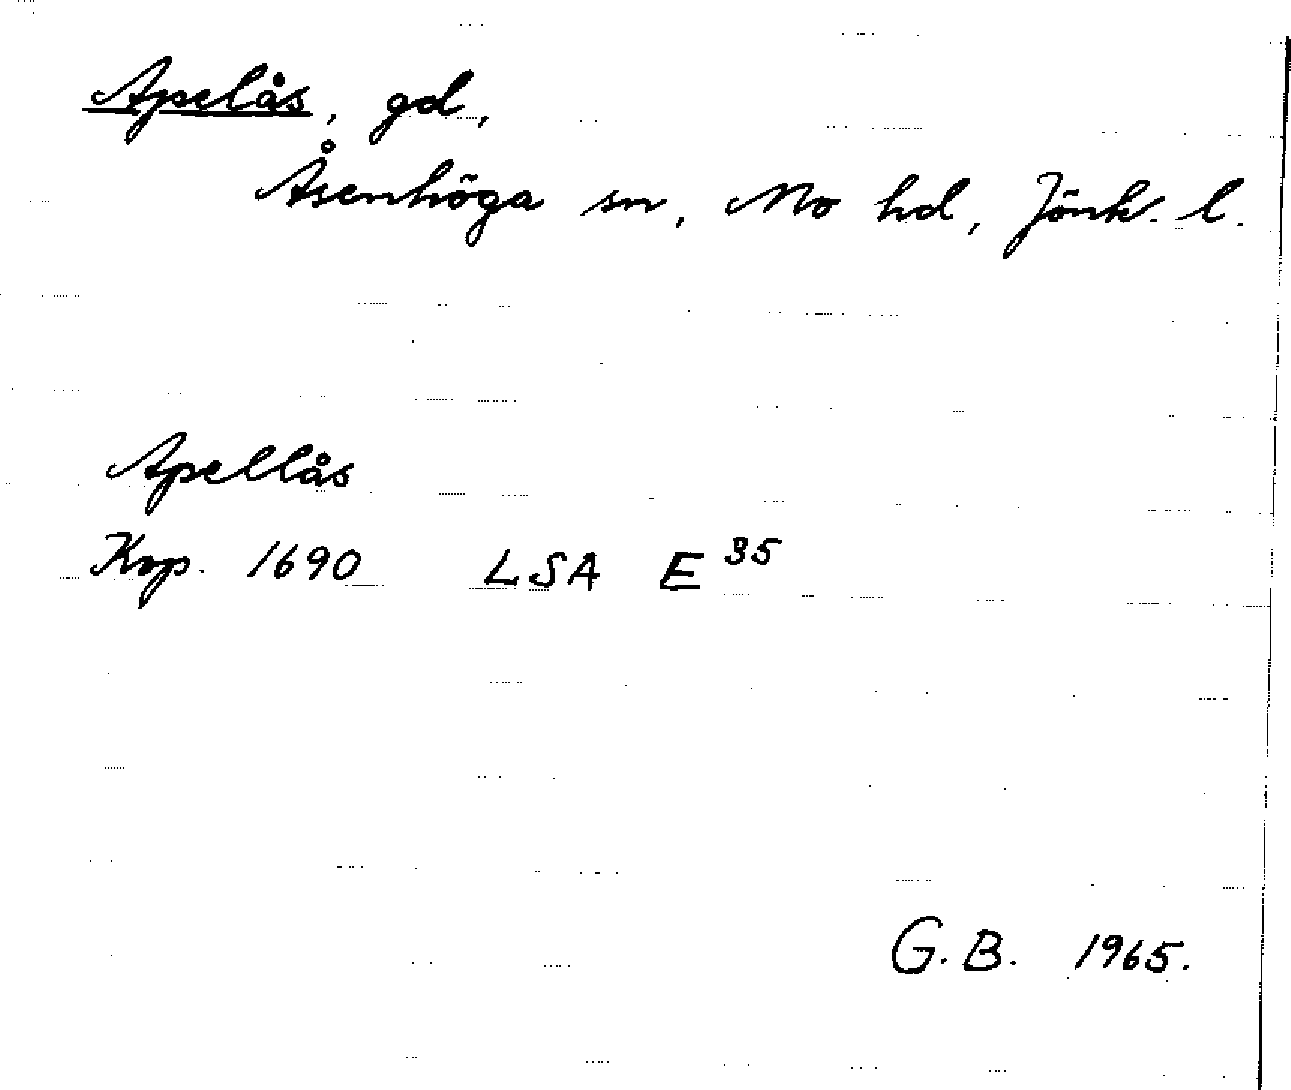 Apelås, gd,
Åsenhöga sn, Mo hd, Jönk. l.
Apellås
Krp. 1690 LSA E 35
G.B. 1965.